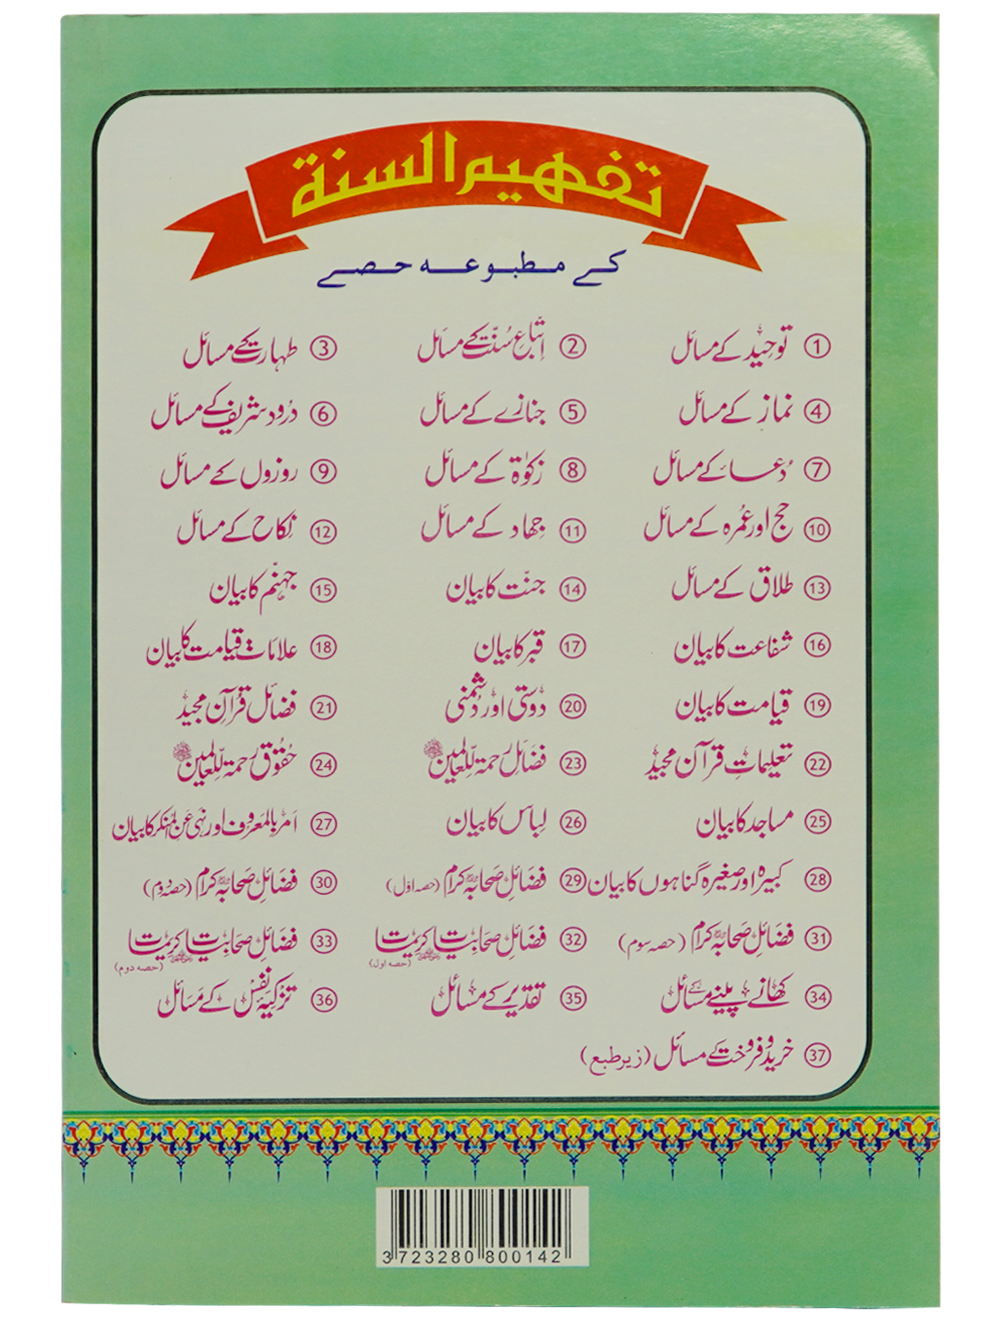 تفهيم السنة
کے مطبوعہ حصے
① توحید کے مسائل ② اتباعِ سُنّت کے مسائل ③ طہارت کے مسائل
④ نماز کے مسائل ⑤ جنازے کے مسائل ⑥ درود شریف کے مسائل
⑦ دُعا کے مسائل ⑧ زکوٰۃ کے مسائل ⑨ روزوں کے مسائل
⑩ حج اور عُمرہ کے مسائل ⑪ جہاد کے مسائل ⑫ نکاح کے مسائل
⑬ طلاق کے مسائل ⑭ جنّت کا بیان ⑮ جہنّم کا بیان
⑯ شفاعت کا بیان ⑰ قبر کا بیان ⑱ علاماتِ قیامت کا بیان
⑲ قیامت کا بیان ⑳ دوستی اور دُشمنی ㉑ فضائل قُرآنِ مجید
㉒ تعلیماتِ قرآن مجید ㉓ فضائل رحمۃ لّلعالمینؐ ㉔ حُقوق رحمۃ لّلعالمینؐ
㉕ مساجد کا بیان ㉖ لباس کا بیان ㉗ امر بالمعروف اور نہی عن المنکر کا بیان
㉘ کبیرہ اور صغیرہ گناہوں کا بیان ㉙ فضائلِ صحابہ کرام (حصہ اول) ㉚ فضائلِ صحابہ کرام (حصہ دوم)
㉛ فضائلِ صحابہ کرام (حصہ سوم) ㉜ فضائلِ صحابیات کریمات (حصہ اول) ㉝ فضائلِ صحابیات کریمات (حصہ دوم)
㉞ کھانے پینے کے مسائل ㉟ تقدیر کے مسائل ㊱ تزکیۂ نفس کے مسائل
㊲ خرید و فروخت کے مسائل (زیر طبع)
3 723280 800142